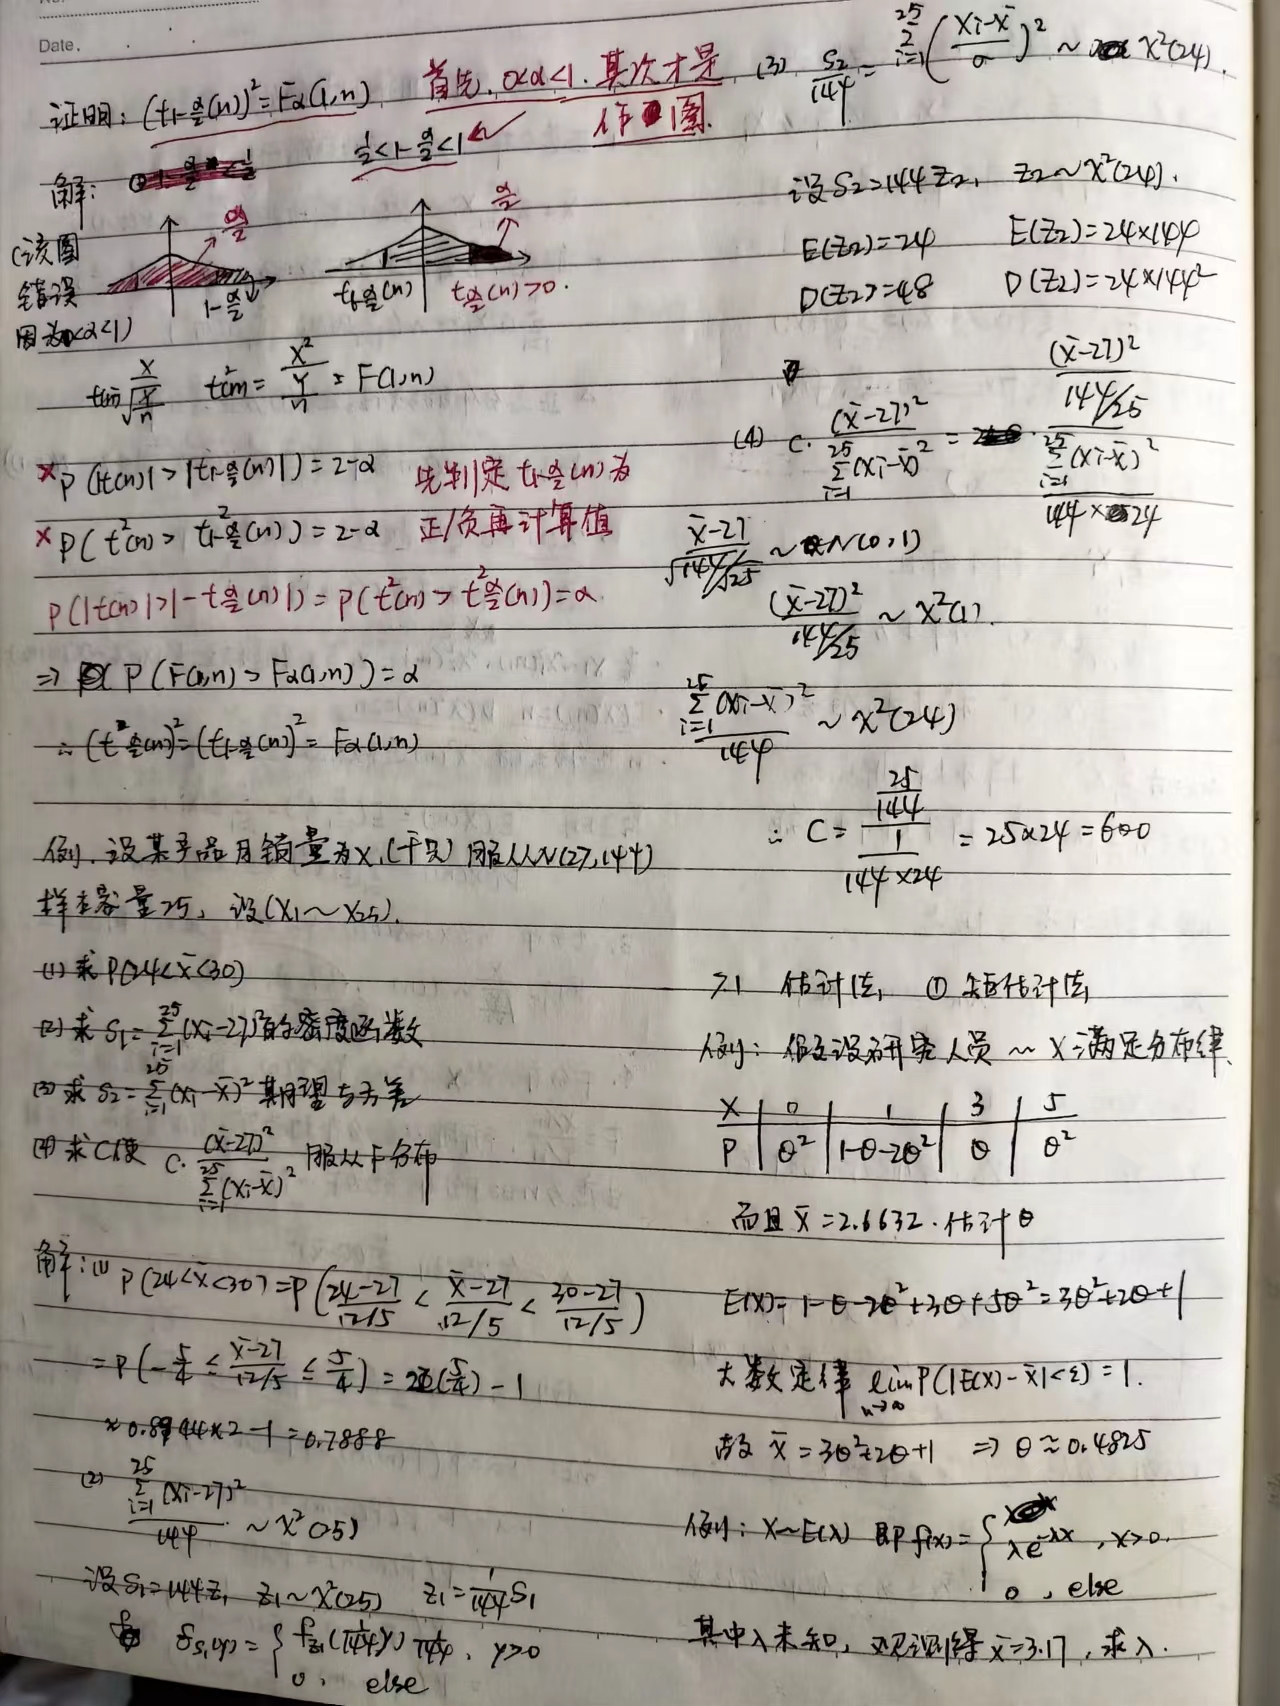 Date.
证明：(t_{1-α/2}(n))²=Fα(1,n) 首先，0<α<1．其次才是
作图．
解： 1/2<1-α/2<1 ✓
(该图
错误
因为0<α<1)
α/2
1-α/2
α/2
t_{1-α/2}(n) t_{α/2}(n)>0.
t(n)= X/√(Y/n) t²(n)= X²/(Y/n) = F(1,n)
×P(|t(n)|>|t_{1-α/2}(n)|)=2-α 先判定t_{1-α/2}(n)为
×P(t²(n)>t²_{1-α/2}(n))=2-α 正/负再计算值
P(|t(n)|>|-t_{α/2}(n)|)=P(t²(n)>t²_{α/2}(n))=α
⇒ P(F(1,n)>Fα(1,n))=α
∴(t_{α/2}(n))²=(t_{1-α/2}(n))²=Fα(1,n)
例．设某产品月销量为X,(千只)服从N(27,144)
样本容量25，设(X1～X25).
(1)求P(24<x̄<30)
(2)求S1=Σ_{i=1}^{25}(Xi-27)²的密度函数
(3)求S2=Σ_{i=1}^{25}(Xi-x̄)²期望与方差
(4)求C使 C·(x̄-27)²/Σ_{i=1}^{25}(Xi-x̄)² 服从F分布
解：(1) P(24<x̄<30)=P((24-27)/(12/5)<(x̄-27)/(12/5)<(30-27)/(12/5))
=P(-5/4≤(x̄-27)/(12/5)≤5/4)=2Φ(5/4)-1
≈0.8944×2-1=0.7888
(2) Σ_{i=1}^{25}(Xi-27)²/144 ～χ²(25)
设S1=144Z1 Z1～χ²(25) Z1=1/144 S1
f_{S1}(y)={ f_{Z1}(1/144 y) 1/144 , y>0
0 , else
(3) S2/144=Σ_{i=1}^{25}((Xi-x̄)/σ)² ～ χ²(24).
设S2=144Z2, Z2～χ²(24).
E(Z2)=24 E(Z2)=24×144
D(Z2)=48 D(Z2)=24×144²
(4) C·(x̄-27)²/Σ_{i=1}^{25}(Xi-x̄)² = ((x̄-27)²/(144/25))/(Σ_{i=1}^{25}(Xi-x̄)²/(144×24))
(x̄-27)/√(144/25) ～N(0,1)
(x̄-27)²/(144/25) ～χ²(1).
Σ_{i=1}^{25}(Xi-x̄)²/144 ～χ²(24)
∴ C=(25/144)/(1/(144×24)) =25×24=600
7.1 估计法 ①矩估计法
例：假设研究人员～X满足分布律
X | 0 | 1 | 3 | 5
P | θ² | 1-θ-2θ² | θ | θ²
而且x̄=2.6632.估计θ
E(X)=1-θ-2θ²+3θ+5θ²=3θ²+2θ+1
大数定律 lim_{n→∞}P(|E(X)-x̄|<ε)=1.
故x̄=3θ²+2θ+1 ⇒ θ≈0.4825
例：X～E(λ) 即f(x)={ λe^{-λx} , x>0.
0 , else
其中λ未知，观测得x̄=3.17，求λ.